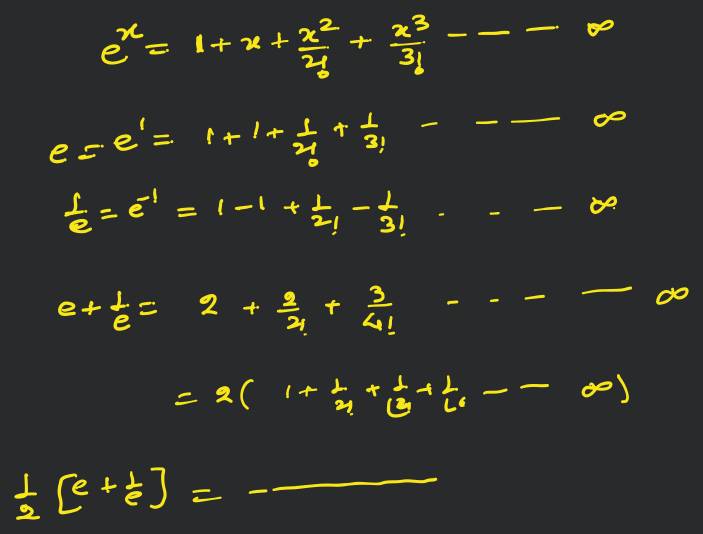 e^x = 1 + x + x²/2! + x³/3! - - - - ∞
e = e¹ = 1 + 1 + 1/2! + 1/3! - - - ∞
1/e = e⁻¹ = 1 - 1 + 1/2! - 1/3! . - - ∞
e + 1/e = 2 + 2/2! + 3/4! - - - - ∞
= 2( 1 + 1/2! + 1/⌊4 + 1/⌊6 - - ∞)
1/2 [e + 1/e] = - ——